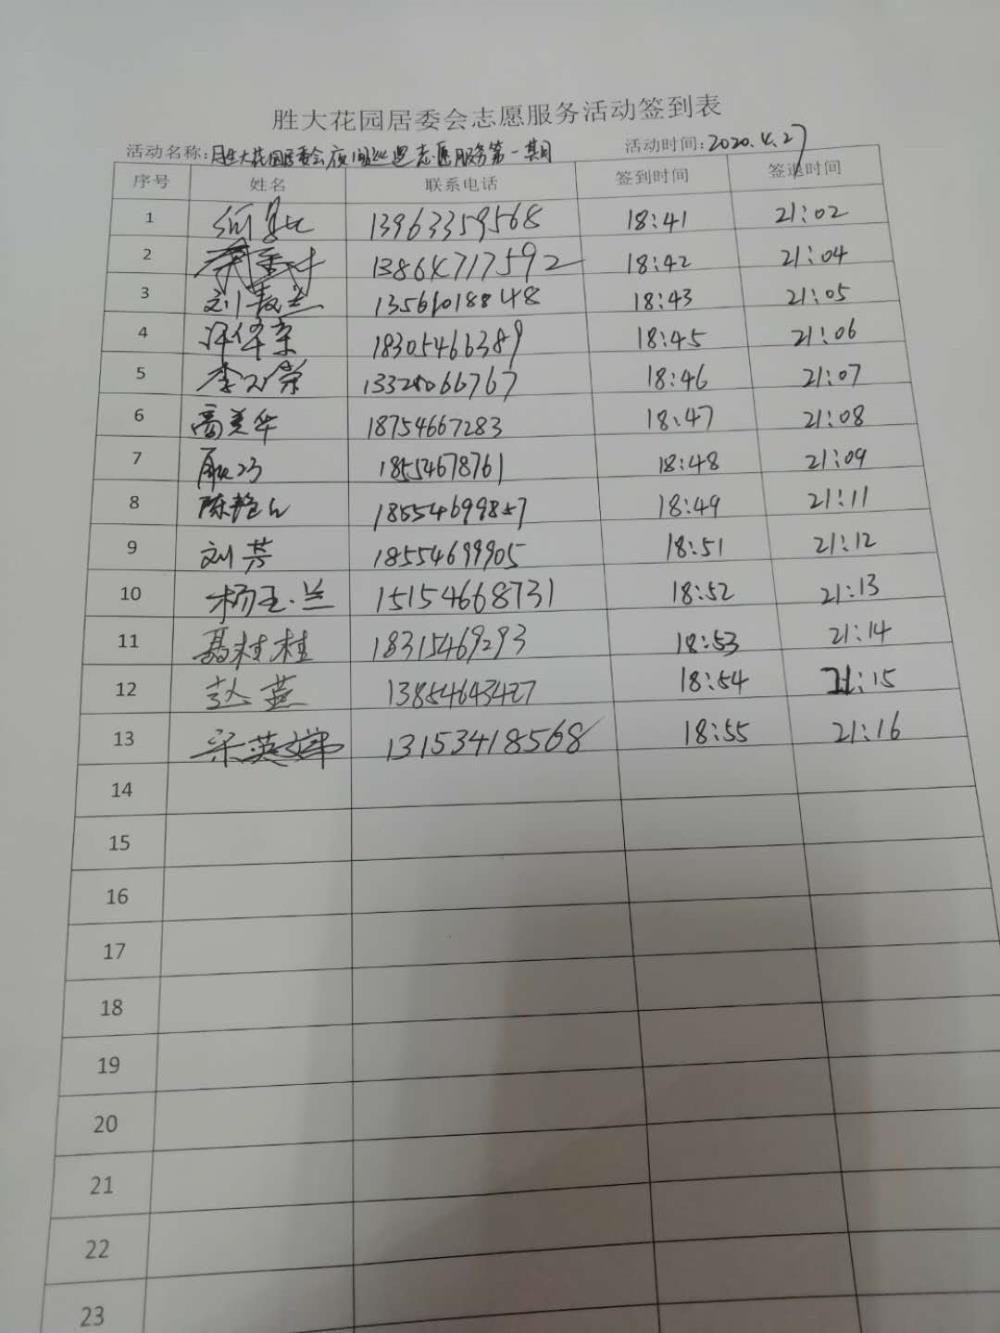 胜大花园居委会志愿服务活动签到表
活动名称:胜大花园居委会夜间巡逻志愿服务第一期 活动时间:2020.4.27
序号 姓名 联系电话 签到时间 签退时间
1 13963359568 18:41 21:02
2 13864717592 18:42 21:04
3 刘 13561018848 18:43 21:05
4 18305466389 18:45 21:06
5 李 荣 13328066767 18:46 21:07
6 高美华 18754667283 18:47 21:08
7 18554678761 18:48 21:09
8 陈艳 18554699857 18:49 21:11
9 刘芳 18554699905 18:51 21:12
10 杨玉兰 15154668731 18:52 21:13
11 聂桂桂 18315469293 18:53 21:14
12 彭燕 13854643427 18:54 21:15
13 梁英娣 13153418568 18:55 21:16
14
15
16
17
18
19
20
21
22
23